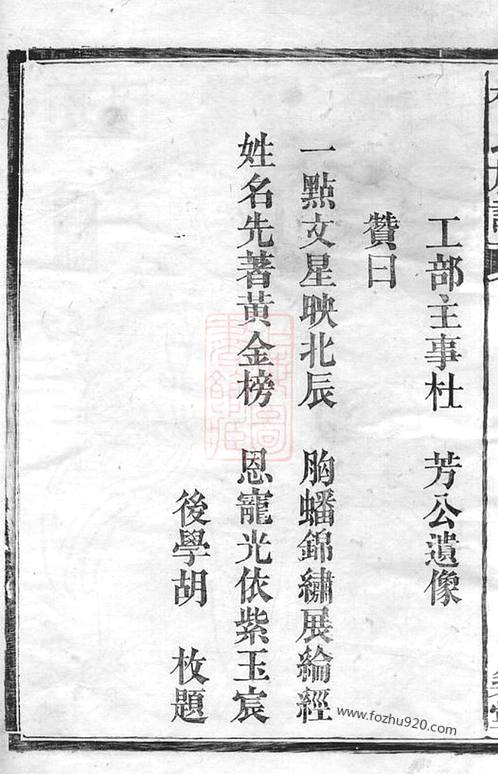 工部主事杜　芳公遺像
贊曰
一點文星映北辰　胸蟠錦繡展綸經
姓名先著黃金榜　恩寵光依紫玉宸
後學胡　枚題
www.fozhu920.com